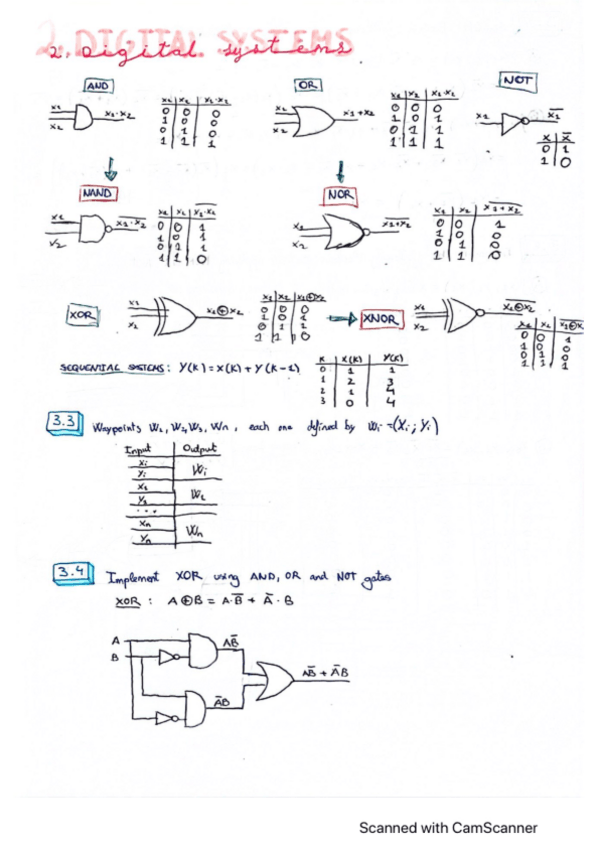 2. DIGITAL SYSTEMS
2. Digital systems
AND OR NOT
x1 x2 x1·x2
x1 x2 x1·x2
0 0 0
1 0 0
0 1 0
1 1 1
x1 x2 x1+x2
x1 x2 x1·x2
0 0 0
1 0 1
0 1 1
1 1 1
x1 x̅1̅
x x̅
0 1
1 0
NAND NOR
x1 x2 x̅1̅·̅x̅2̅
x1 x2 x̅1̅·̅x̅2̅
0 0 1
1 0 1
0 1 1
1 1 0
x1 x2 x̅1̅+̅x̅2̅
x1 x2 x̅1̅+̅x̅2̅
0 0 1
1 0 0
0 1 0
1 1 0
XOR
x1 x2 x1⊕x2
x1 x2 x1⊕x2
0 0 0
1 0 1
0 1 1
1 1 0
XNOR
x1 x2 x̅1̅⊕̅x̅2̅
x1 x2
0 0 1
1 0 0
0 1 0
1 1 1
SEQUENTIAL SYSTEMS: Y(K) = X(K) + Y(K-1)
K X(K) Y(K)
0 1 1
1 2 3
2 1 4
3 0 4
3.3 Waypoints W1, W2, W3, Wn, each one defined by Wi = (Xi ; Yi)
Input Output
Xi
Yi Wi
X2
Y2 W2
...
Xn
Yn Wn
3.4 Implement XOR using AND, OR and NOT gates
XOR : A⊕B = A·B̅ + A̅·B
A
B
AB̅
A̅B
AB̅ + A̅B
Scanned with CamScanner